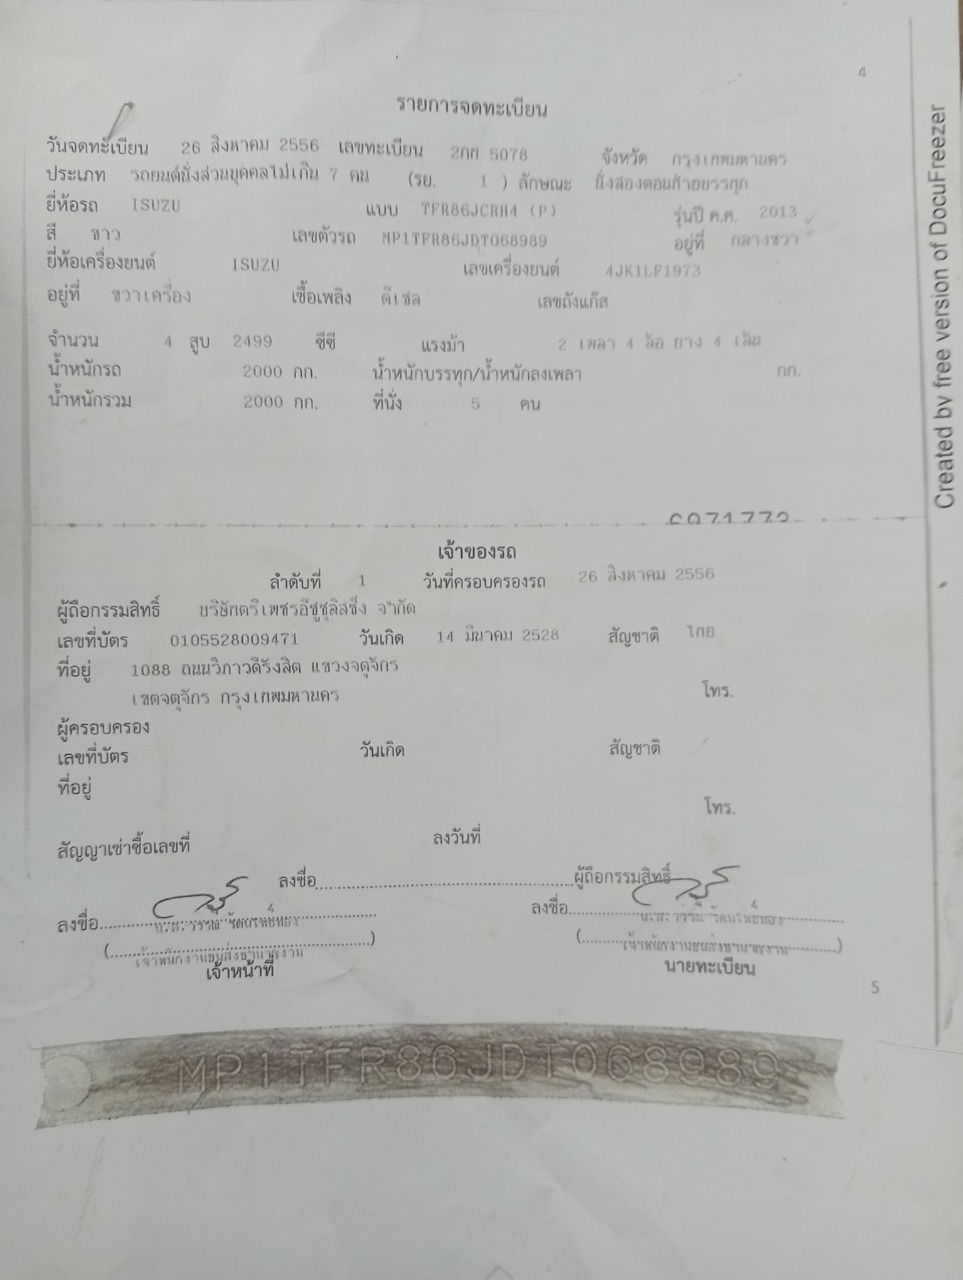 4
รายการจดทะเบียน
วันจดทะเบียน 26 สิงหาคม 2556 เลขทะเบียน 2กก 5078 จังหวัด กรุงเทพมหานคร
ประเภท รถยนต์นั่งส่วนบุคคลไม่เกิน 7 คน (รย. 1 ) ลักษณะ นั่งสองตอนท้ายบรรทุก
ยี่ห้อรถ ISUZU แบบ TFR86JCRH4 (P) รุ่นปี ค.ศ. 2013
สี ขาว เลขตัวรถ MP1TFR86JDT068989 อยู่ที่ กลางขวา
ยี่ห้อเครื่องยนต์ ISUZU เลขเครื่องยนต์ 4JK1LF1973
อยู่ที่ ขวาเครื่อง เชื้อเพลิง ดีเซล เลขถังแก๊ส
จำนวน 4 สูบ 2499 ซีซี แรงม้า 2 เพลา 4 ล้อ ยาง 4 เส้น
น้ำหนักรถ 2000 กก. น้ำหนักบรรทุก/น้ำหนักลงเพลา กก.
น้ำหนักรวม 2000 กก. ที่นั่ง 5 คน
เจ้าของรถ
ลำดับที่ 1 วันที่ครอบครองรถ 26 สิงหาคม 2556
ผู้ถือกรรมสิทธิ์ บริษัทตรีเพชรอีซูซุลิสซิ่ง จำกัด
เลขที่บัตร 0105528009471 วันเกิด 14 มีนาคม 2528 สัญชาติ ไทย
ที่อยู่ 1088 ถนนวิภาวดีรังสิต แขวงจตุจักร
เขตจตุจักร กรุงเทพมหานคร โทร.
ผู้ครอบครอง
เลขที่บัตร วันเกิด สัญชาติ
ที่อยู่
โทร.
สัญญาเช่าซื้อเลขที่ ลงวันที่
ลงชื่อ ผู้ถือกรรมสิทธิ์
ลงชื่อ ลงชื่อ
เจ้าพนักงานขนส่งชำนาญงาน เจ้าพนักงานขนส่งชำนาญงาน
เจ้าหน้าที่ นายทะเบียน
5
MP1TFR86JDT068989
Created by free version of DocuFreezer